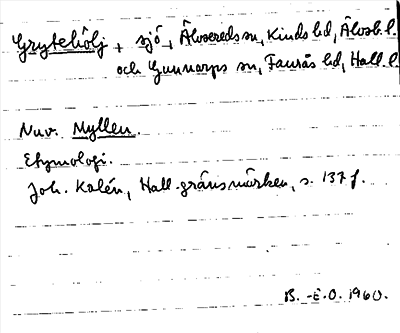 Grytehölj, + sjö, Älvsereds sn, Kinds hd, Älvsb. l.
och Gunnarps sn, Faurås hd, Hall. l.
Nuv. Myllen.
Etymologi.
Joh. Kalén, Hall. gränsmärken, s. 137 f.
B.-E.O. 1960.